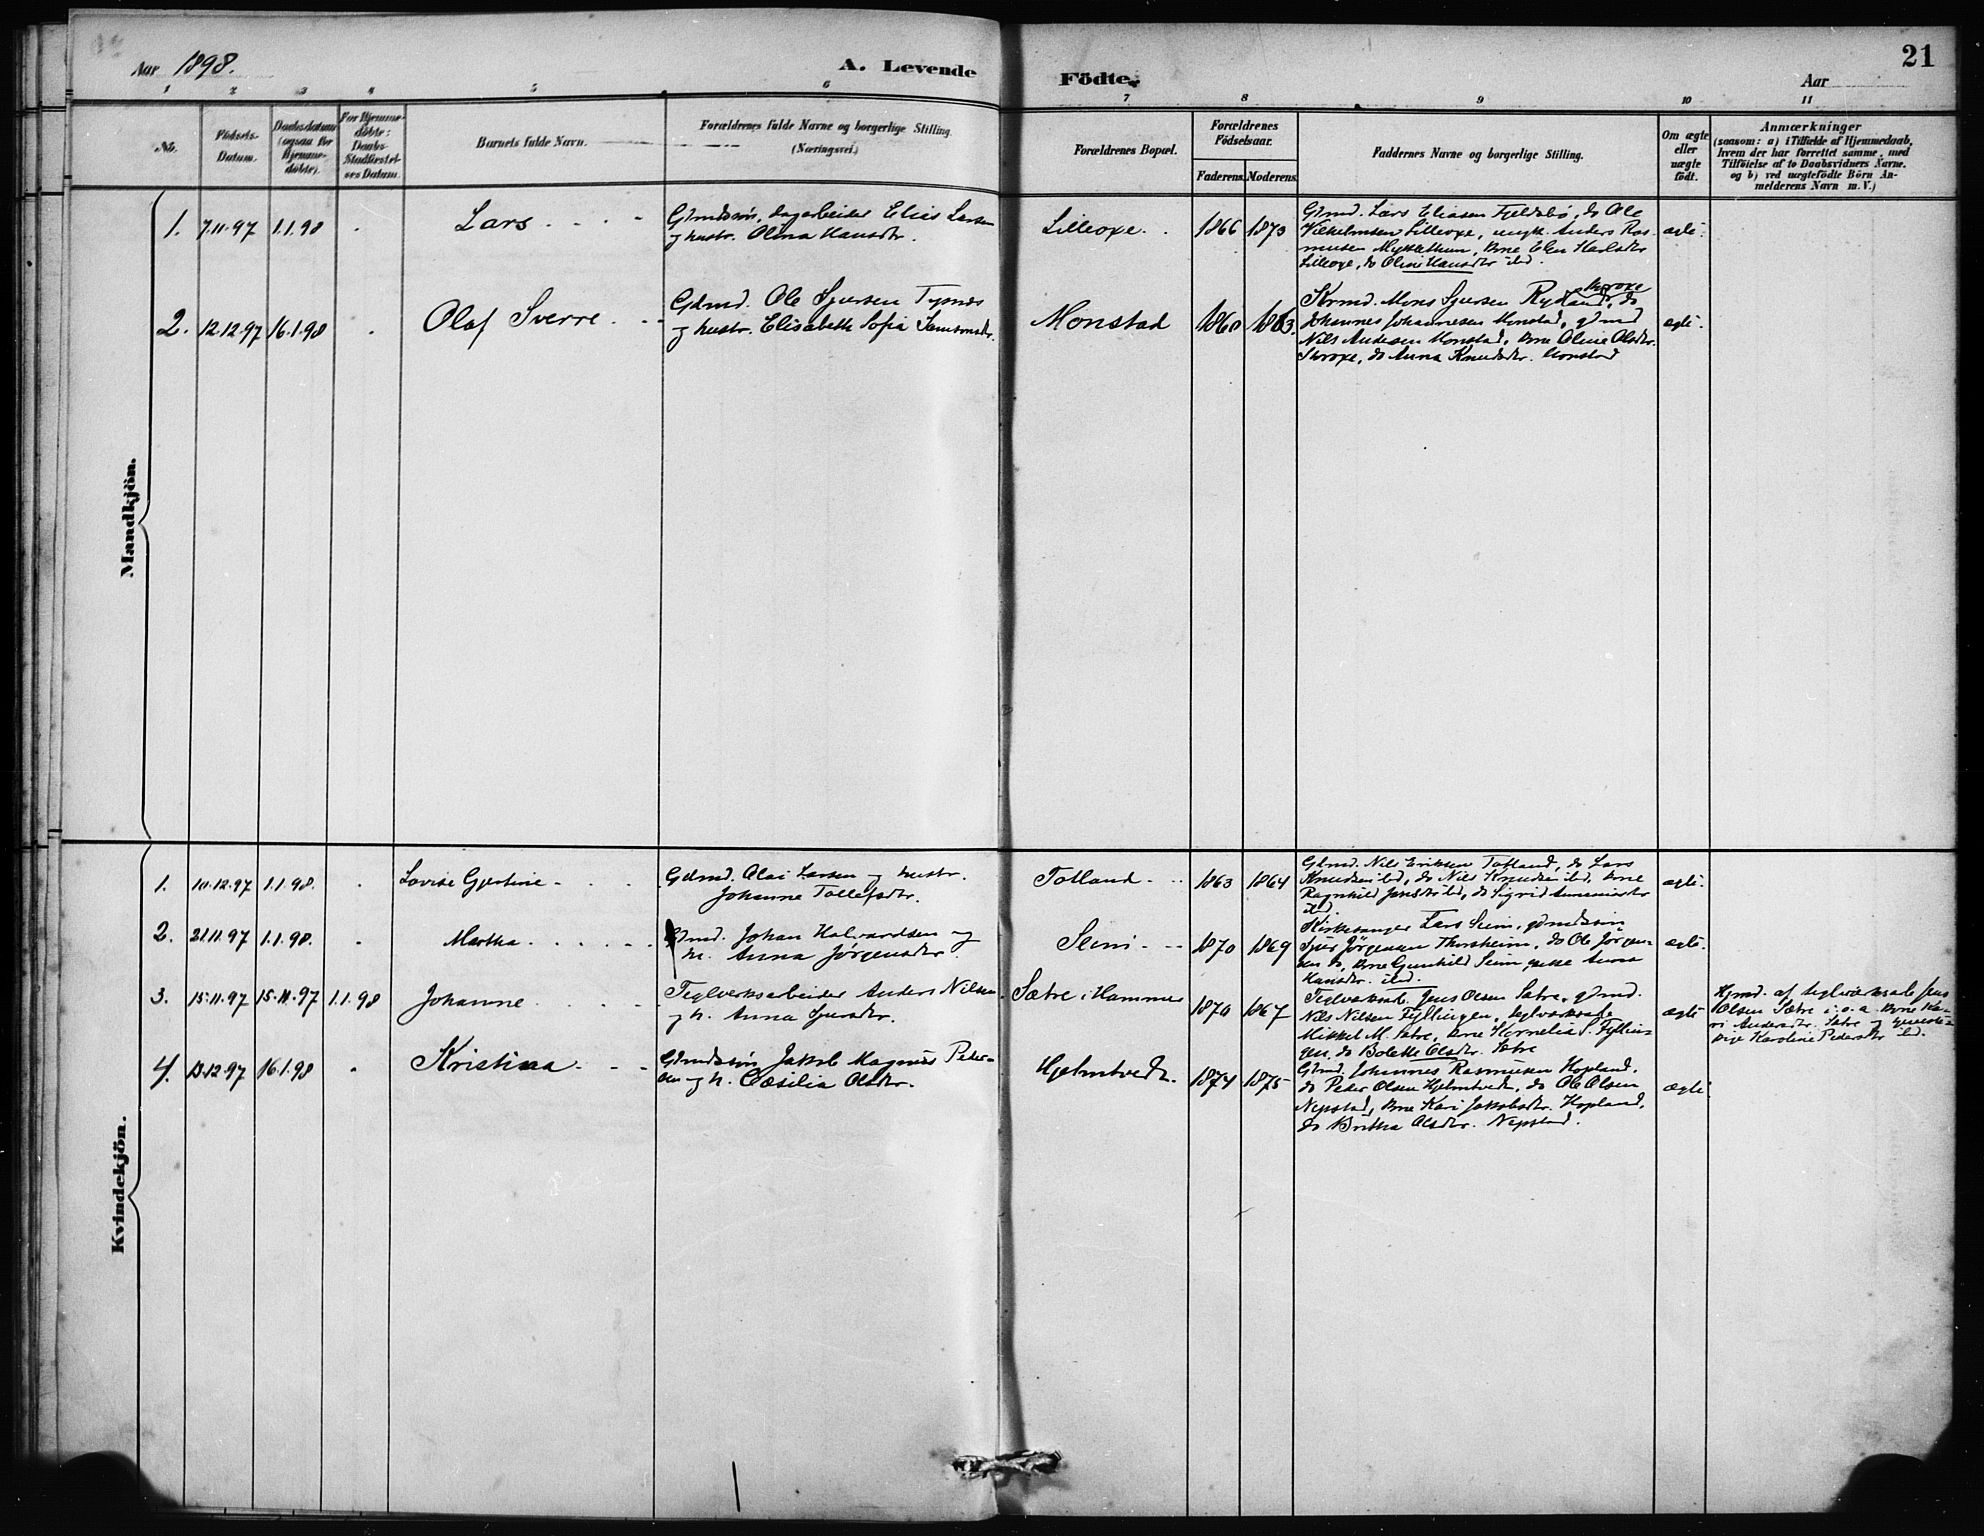 21
Aar 1898. A. Levende Födte. Aar
1 2 3 4 5 6 7 8 9 10 11
No.
Födsels-
Datum.
Daabsdatum
(ogsaa for
Hjemme-
döbte).
For Hjemme-
döbte:
Daabs-
Stadfæstel-
ses Datum.
Barnets fulde Navn.
Forældrenes fulde Navne og borgerlige Stilling.
(Næringsvei.)
Forældrenes Bopæl.
Forældrenes
Födselsaar.
Faderens. Moderens.
Faddernes Navne og borgerlige Stilling.
Om ægte
eller
uægte
födt.
Anmærkninger
(saasom: a) i Tilfælde af Hjemmedaab,
hvem der har forrettet samme, med
Tilföielse af to Daabsvidners Navne,
og b) ved uægtefödte Börn An-
melderens Navn m.V.)
Mandkjön.
1. 7.11.97 1.1.98 Lars
Gdmdssøn, dagarbeider Elias Larsen
og hustr. Olina Hansdtr.
Lilleoxe. 1866 1873
Gdmd. Lars Eliasen Fjeldsbø, do Ole
Vilhelmsen Lilleoxe, ungk. Anders Ras-
musen Myklethun, Kone Elen Karlsdtr
Lilleoxe, do Oline Hansdtr ibd.
ægte.
2. 12.12.97 16.1.98 Olaf Sverre
Gdmd. Ole Sjursen Tysnes
og hustr. Elisabeth Sofia
Monstad 1860 1863.
Mons Sjursen Rydland, do
Johannes Johannesen Monstad, gdmd
Nils Andersen Monstad, Kone Oline Olsdtr.
do Anna Knudsdtr. Monstad
ægte.
Kvindekjön.
1. 10.12.97 1.1.98. Lovise Gjertine
Gdmd. Olai Larsen og hustr.
Johanne Tollefsdtr.
Totland 1863 1864
Gdmd. Nils Eriksen Totland, do Lars
Knudsen ibd, do Nils Knudsen ibd, Kone
Ragnhild ibd, do Sigrid
ibd
ægte.
2. 21.11.97 1.1.98. Martha
Gdmd. Johan Halvardsen og
h. Anna Jørgensdtr.
Seim 1870 1869
Kirkesanger Lars Seim, gdmdssøn
Sjur Jørgensen Thorsheim, do Ole Jørgen-
sen do, Kone Gunhild Seim, Anna
Hansdtr. ibd.
ægte.
3. 15.11.97 15.11.97 1.1.98 Johanne
Teglverksarbeider Anders Nilsen
og h. Anna Sjursdtr.
Sætre i Hammer 1870 1867
Teglverksarb. Jens Olsen Sætre, gdmd.
Nils Nilsen Fyllingen, teglverksarb
Mikkel M. Sætre, Kone Kornelia S. Fyllin-
gen, do Bolette Olsdtr. Sætre
ægte
Hjmd. af teglverksarb Jens
Olsen Sætre i. o. a. Kone Ka-
ri Andersdtr. Sætre og
Karoline Pedersdtr ibd.
4. 13.12.97 16.1.98 Kristina
Gdmdssøn Jakob Magnus Peder-
sen og h. Cæsilia Olsdtr.
Hjelmtvedt. 1874 1875
Gdmd. Johannes Rasmusen Hopland,
do Peder Olsen Hjelmtvedt, do Ole Olsen
Nepstad, Kone Kari Jakobsdtr. Hopland,
do Brita Olsdtr. Nepstad.
ægte.